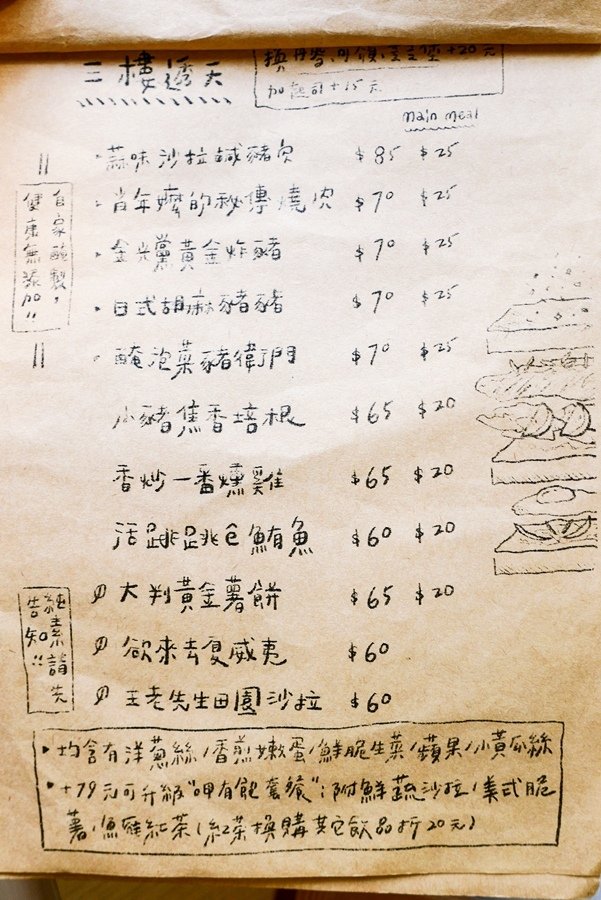 三樓透天
換丹麥、可頌、漢堡+20元
加起司+15元
main meal
蒜味沙拉鹹豬肉 $85 $25
肖年嬤的秘傳燒肉 $70 $25
金光黨黃金炸豬 $70 $25
日式胡麻豬豬 $70 $25
醃泡菜豬衛門 $70 $25
小豬焦香培根 $65 $20
香炒一番燻雞 $65 $20
活跳跳ㄟ鮪魚 $60 $20
大判黃金薯餅 $65 $20
欲來去夏威夷 $60
王老先生田園沙拉 $60
自家醃製,
健康無添加!!
純素請先
告知!!
均含有洋蔥絲/香煎嫩蛋/鮮脆生菜/蘋果/小黃瓜絲
+79元可升級"呷有飽套餐":附鮮蔬沙拉/美式脆
薯/魚雞紅茶(紅茶換購其它飲品折20元)